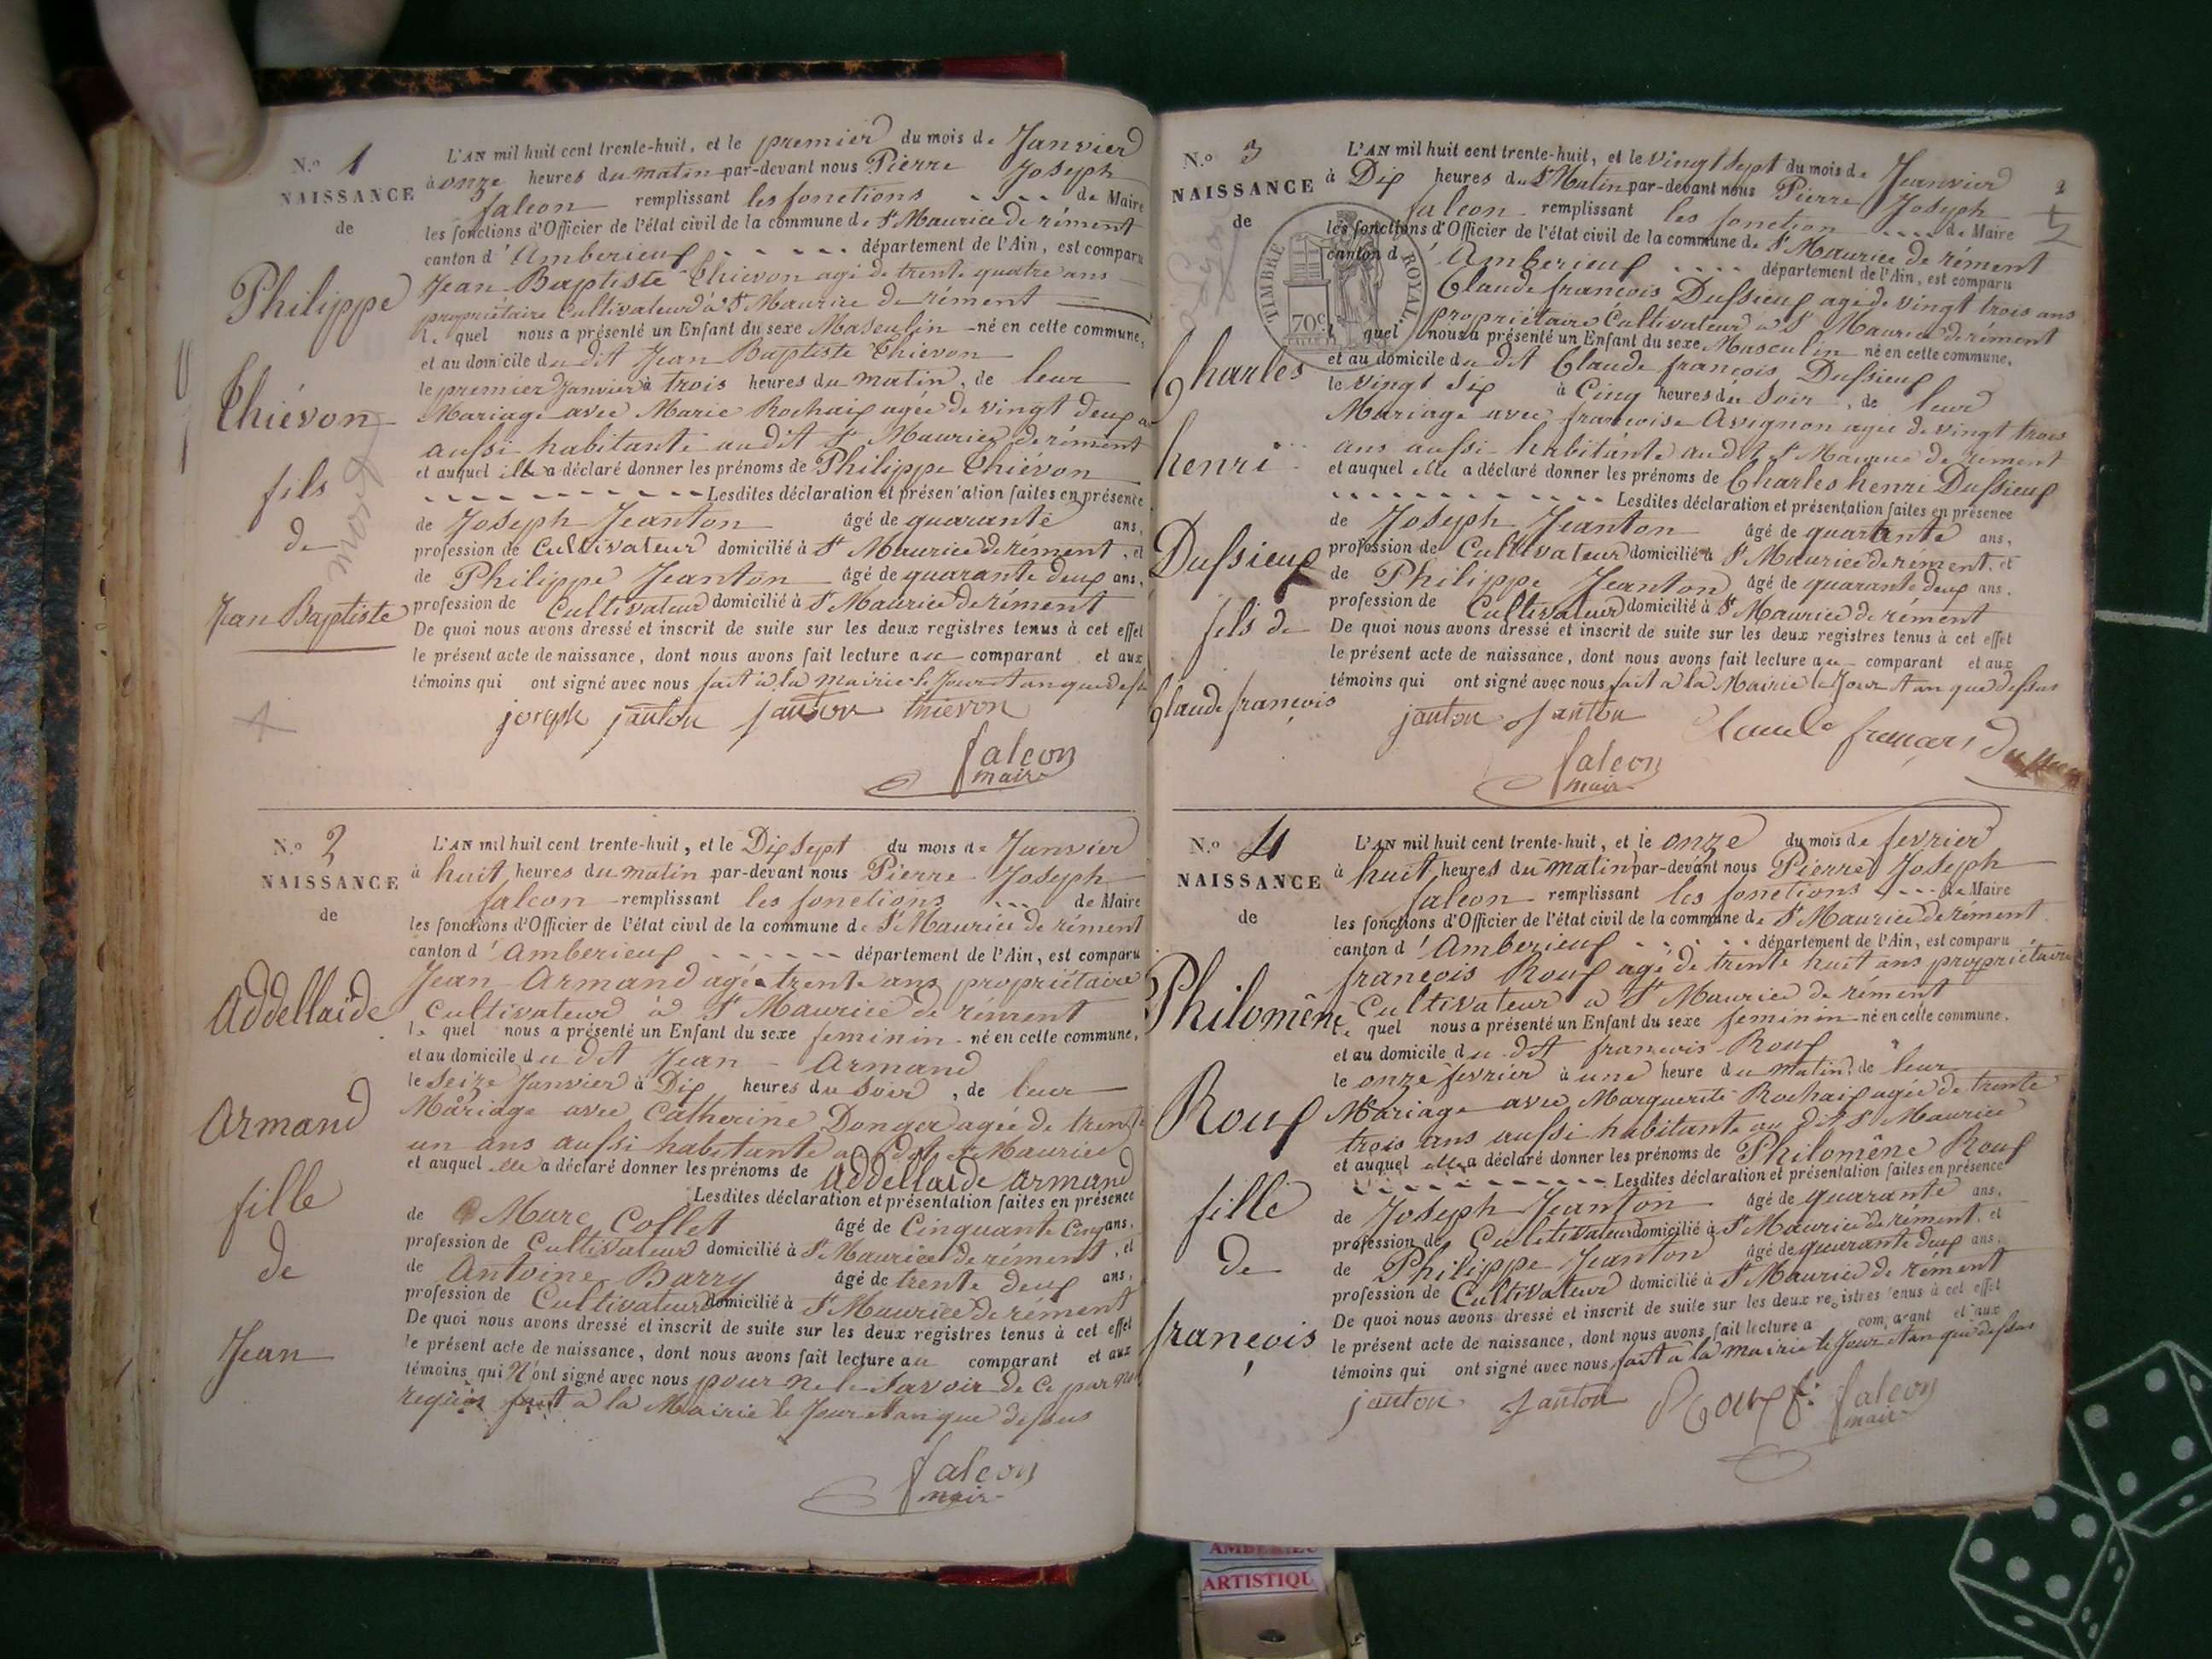 N.o 1
NAISSANCE
de
Philippe
Thiévon
fils
de
Jean Baptiste
L'AN mil huit cent trente-huit, et le premier du mois de Janvier
à onze heures du matin par-devant nous Pierre Joseph
falcon remplissant les fonctions de Maire
les fonctions d'Officier de l'état civil de la commune de St Maurice de rément
canton d'Amberieux département de l'Ain, est comparu
Jean Baptiste Thievon agé de trente quatre ans
propriétaire Cultivateur à St Maurice de rément
le quel nous a présenté un Enfant du sexe Masculin né en cette commune,
et au domicile du dit Jean Baptiste Thievon
le premier Janvier à trois heures du matin, de leur
Mariage avec Marie Rochaix agée de vingt deux
aussi habitante au dit St Maurice de rément
et auquel ille a déclaré donner les prénoms de Philippe Thiévon
Lesdites déclaration et présentation faites en présence
de Joseph Jeanton âgé de quarante ans,
profession de Cultivateur domicilié à St Maurice de rément, et
de Philippe Jeanton âgé de quarante deux ans,
profession de Cultivateur domicilié à St Maurice de rément
De quoi nous avons dressé et inscrit de suite sur les deux registres tenus à cet effet
le présent acte de naissance, dont nous avons fait lecture au comparant et aux
témoins qui ont signé avec nous fait à la Mairie le Jour et an que dessus
joseph janton janton thievon
falcon
maire
N.o 2
NAISSANCE
de
Addellaide
Armand
fille
de
Jean
L'AN mil huit cent trente-huit, et le Dix sept du mois de Janvier
à huit heures du matin par-devant nous Pierre Joseph
falcon remplissant les fonctions de Maire
les fonctions d'Officier de l'état civil de la commune de St Maurice de rément
canton d'Amberieux département de l'Ain, est comparu
Jean Armand agé trente ans propriétaire
Cultivateur à St Maurice de rément
le quel nous a présenté un Enfant du sexe feminin né en cette commune,
et au domicile du dit Jean Armand
le Seize Janvier à Dix heures du soir, de leur
Mariage avec Catherine Donger agée de trente
un ans aussi habitante au dit St Maurice
et auquel elle a déclaré donner les prénoms de Addellaide Armand
Lesdites déclaration et présentation faites en présence
de Marc Collet âgé de Cinquante Cinq ans,
profession de Cultivateur domicilié à St Maurice de rément, et
de Antoine Barry âgé de trente deux ans,
profession de Cultivateur domicilié à St Maurice de rément
De quoi nous avons dressé et inscrit de suite sur les deux registres tenus à cet effet
le présent acte de naissance, dont nous avons fait lecture au comparant et aux
témoins qui N'ont signé avec nous pour ne le Savoir de Ce par nous
requis fait à la Mairie le Jour et an que dessus
falcon
maire
N.o 3
NAISSANCE
de
Charles
henri
Dussieux
fils de
Claude françois
TIMBRE ROYAL
70c
L'AN mil huit cent trente-huit, et le vingt sept du mois de Jeanvier
à Dix heures du Matin par-devant nous Pierre Joseph
falcon remplissant les fonction de Maire
les fonctions d'Officier de l'état civil de la commune de St Maurice de rément
canton d'Amberieux département de l'Ain, est comparu
Claude françois Dussieux agé de vingt trois ans
propriétaire Cultivateur à St Maurice de rément
quel nous a présenté un Enfant du sexe Masculin né en cette commune,
et au domicile du dit Claude françois Dussieux
le vingt Six à Cinq heures du Soir, de leur
Mariage avec françoise Avignon agée de vingt trois
ans aussi habitante au dit St Maurice de rément
et auquel elle a déclaré donner les prénoms de Charles henri Dussieux
Lesdites déclaration et présentation faites en présence
de Joseph Jeanton âgé de quarante ans,
profession de Cultivateur domicilié à St Maurice de rément, et
de Philippe Jeanton âgé de quarante deux ans,
profession de Cultivateur domicilié à St Maurice de rément
De quoi nous avons dressé et inscrit de suite sur les deux registres tenus à cet effet
le présent acte de naissance, dont nous avons fait lecture au comparant et aux
témoins qui ont signé avec nous fait à la Mairie le Jour et an que dessus
janton janton Claude françois
falcon
maire
N.o 4
NAISSANCE
de
Philomêne
Roux
fille
de
françois
L'AN mil huit cent trente-huit, et le onze du mois de fevrier
à huit heures du matin par-devant nous Pierre Joseph
falcon remplissant les fonctions de Maire
les fonctions d'Officier de l'état civil de la commune de St Maurice de rément
canton d'Amberieux département de l'Ain, est comparu
françois Roux agé de trente huit ans propriétaire
Cultivateur à St Maurice de rément
le quel nous a présenté un Enfant du sexe feminin né en cette commune,
et au domicile du dit françois Roux
le onze fevrier à une heure du matin, de leur
Mariage avec Marguerite Rochaix agée de trente
trois ans aussi habitante au dit St Maurice
et auquel elle a déclaré donner les prénoms de Philomêne Roux
Lesdites déclaration et présentation faites en présence
de Joseph Jeanton âgé de quarante ans,
profession de Cultivateur domicilié à St Maurice de rément, et
de Philippe Jeanton âgé de quarante deux ans,
profession de Cultivateur domicilié à St Maurice de rément
De quoi nous avons dressé et inscrit de suite sur les deux registres tenus à cet effet
le présent acte de naissance, dont nous avons fait lecture a comparant et aux
témoins qui ont signé avec nous fait à la mairie le Jour et an que dessus
janton janton Roux f: falcon
maire
ARTISTIQU